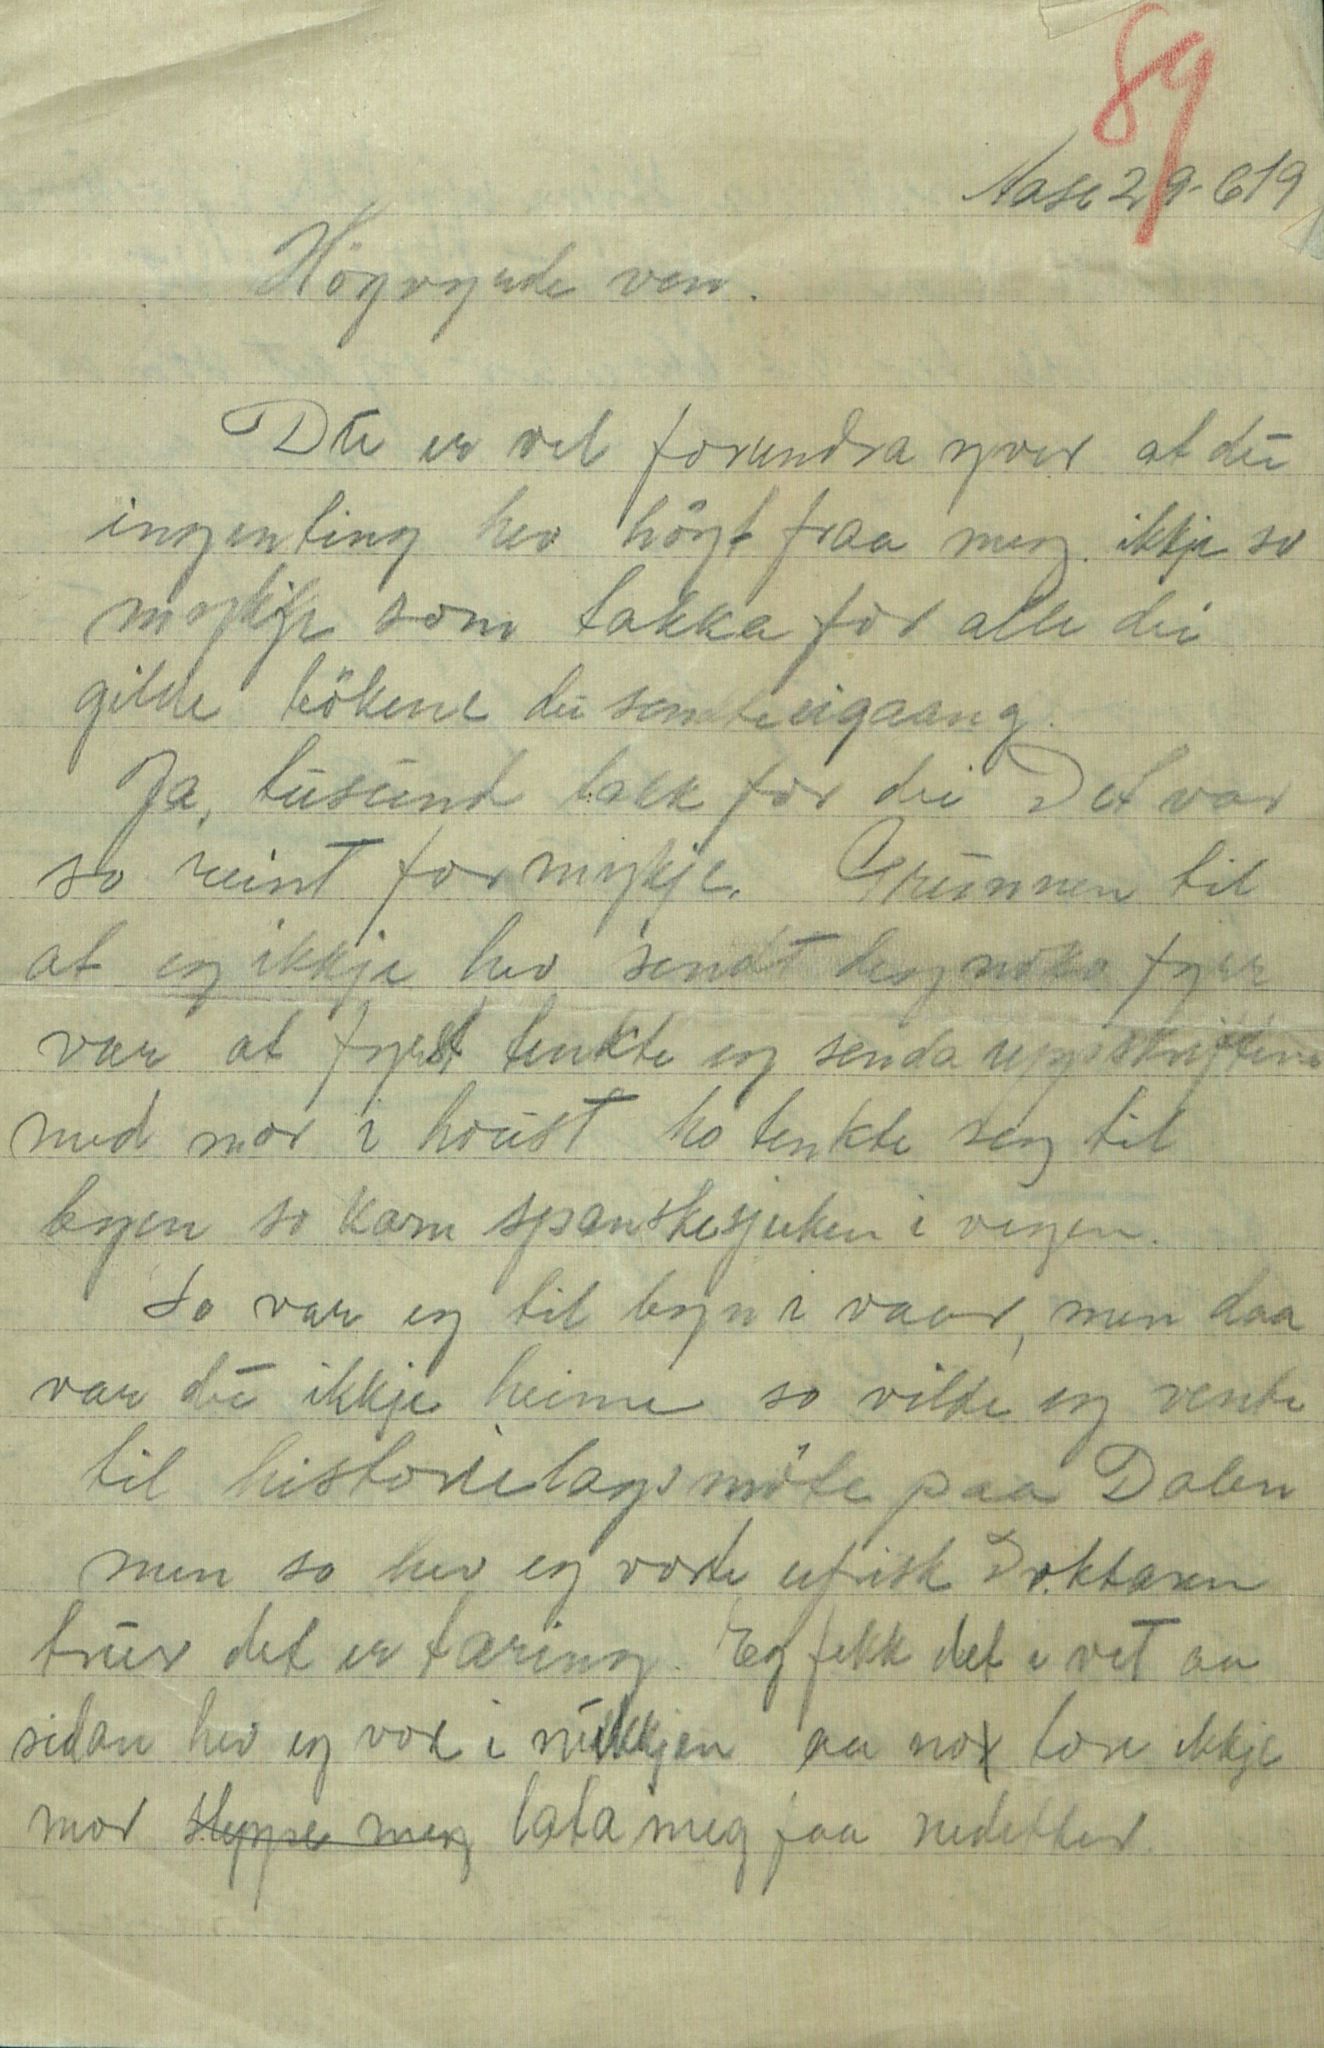 89
Aase 29-619
Högvyrde ven.
Du er vel forundra yver at du
ingenting hev höyt fraa meg. ikkje so
mykje som takka for alle dei
gilde bökene du sende eigaang.
Ja, tusund takk for dei Det var
so reint for mykje. Grunnen til
at eg ikkje hev sendt deg noko fyrr
var at fyrst tenkte eg senda uppskriftene
med mor i houst ho tenkte seg til
byen so kom spanskesjuken i vegen.
So var eg til byn i vaar, men daa
var du ikkje heime so vilde eg vente
til historielagsmöte paa Dalen
men so hev eg vorte ufrisk Doktaren
trur det er tæring. Eg fekk det i vet aa
sidan hev eg vore i aa no tore ikkje
mor sleppe meg lata meg faa nedetter.